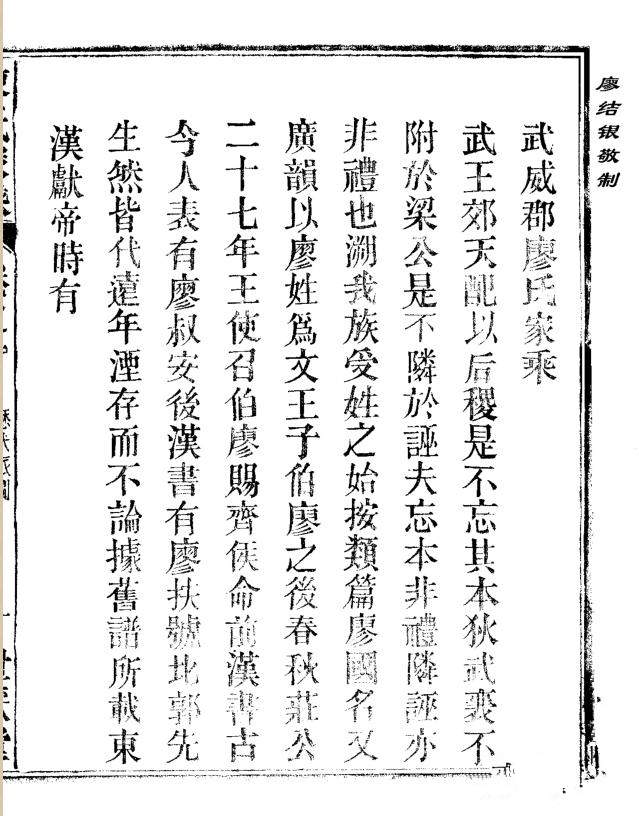 廖结银敬制
武威郡廖氏家乘
武王郊天配以后稷是不忘其本狄武襄不
附於梁公是不隣於誣夫忘本非禮隣誣亦
非禮也溯我族受姓之始按類篇廖國名又
廣韻以廖姓爲文王子伯廖之後春秋莊公
二十七年王使召伯廖賜齊侯命前漢書古
今人表有廖叔安後漢書有廖扶號北郭先
生然皆代遠年湮存而不論據舊譜所載東
漢獻帝時有